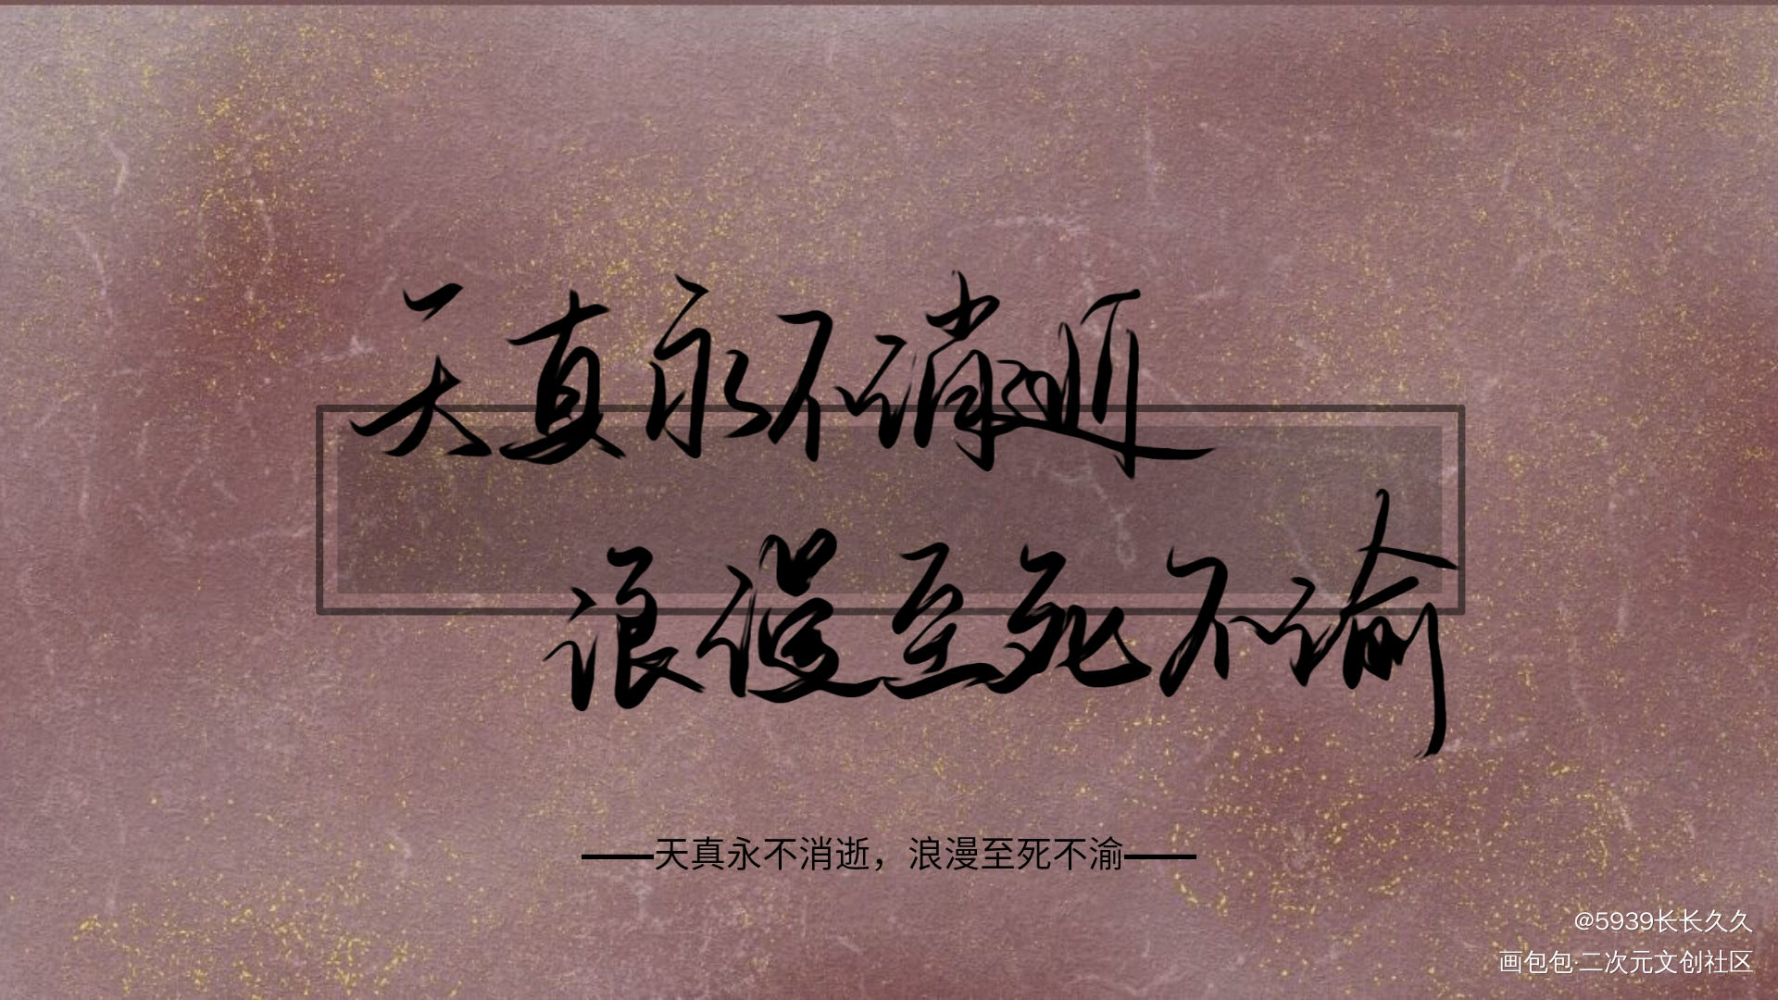 天真永不消逝
浪漫至死不渝
——天真永不消逝，浪漫至死不渝——
@5939长长久久
画包包·二次元文创社区